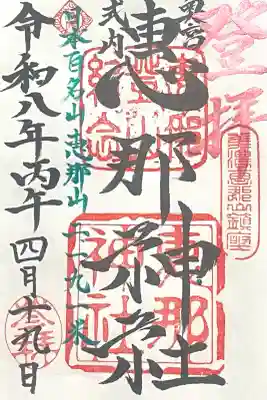 登拝
式内
惠那神社
日本百名山 恵那山 二一九一米
令和八年丙午 四月十九日
惠那神社